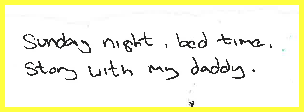 Sunday night, bed time.
Story with my daddy.